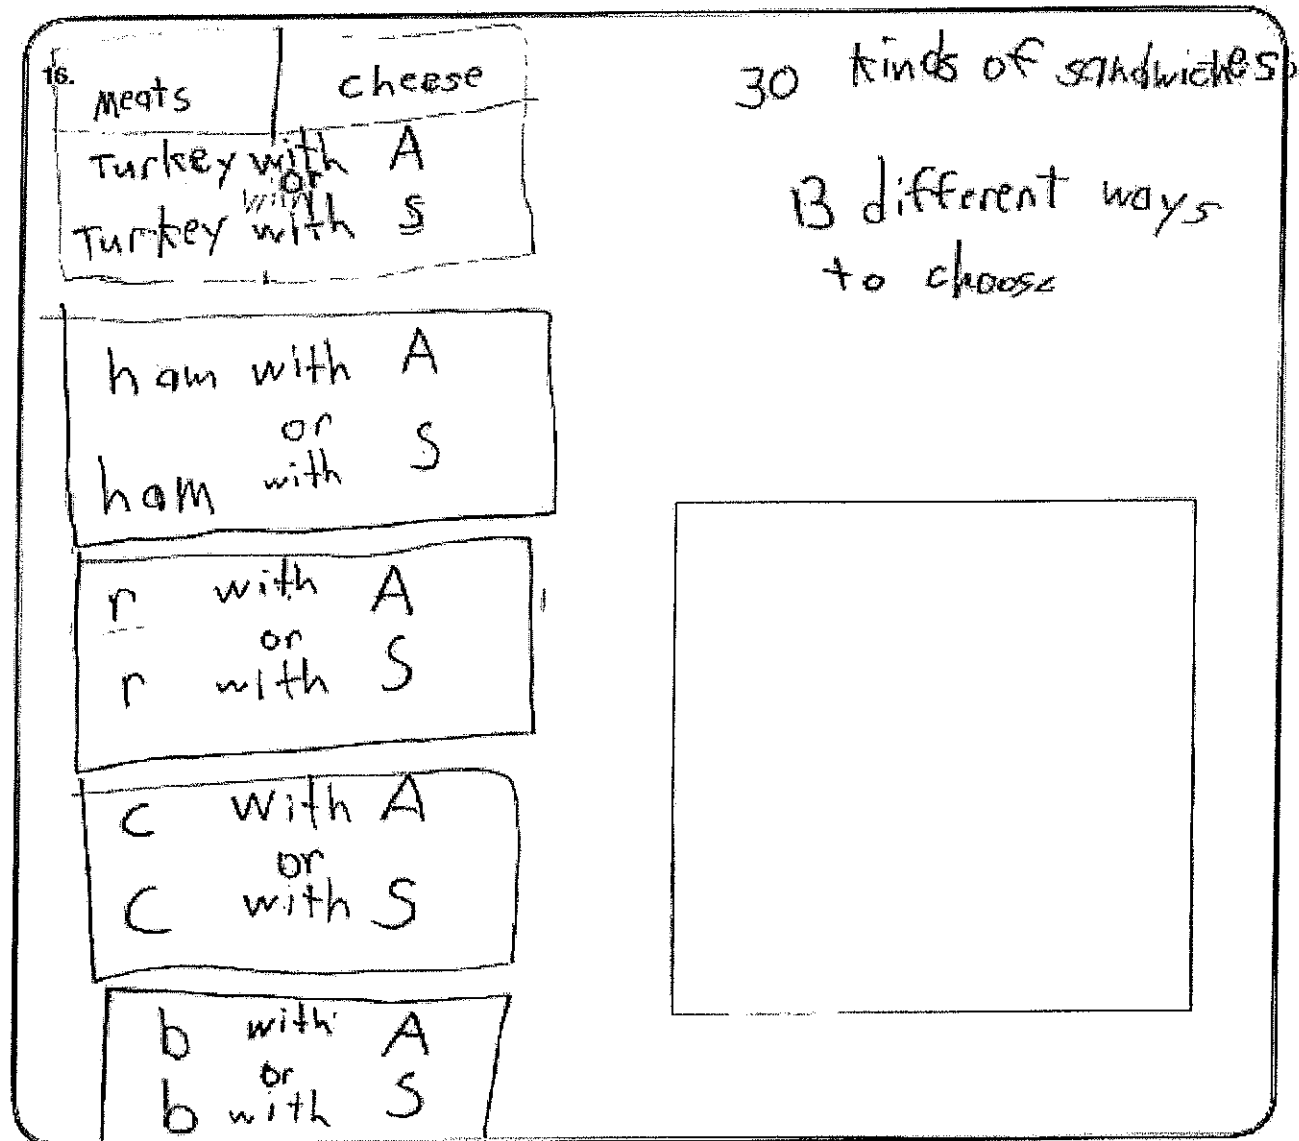 16.
Meats cheese
Turkey with A
or
Turkey with S
ham with A
or
ham with S
r with A
or
r with S
c with A
or
C with S
b with A
or
b with S
30 kinds of sandwichess
13 different ways
to choose